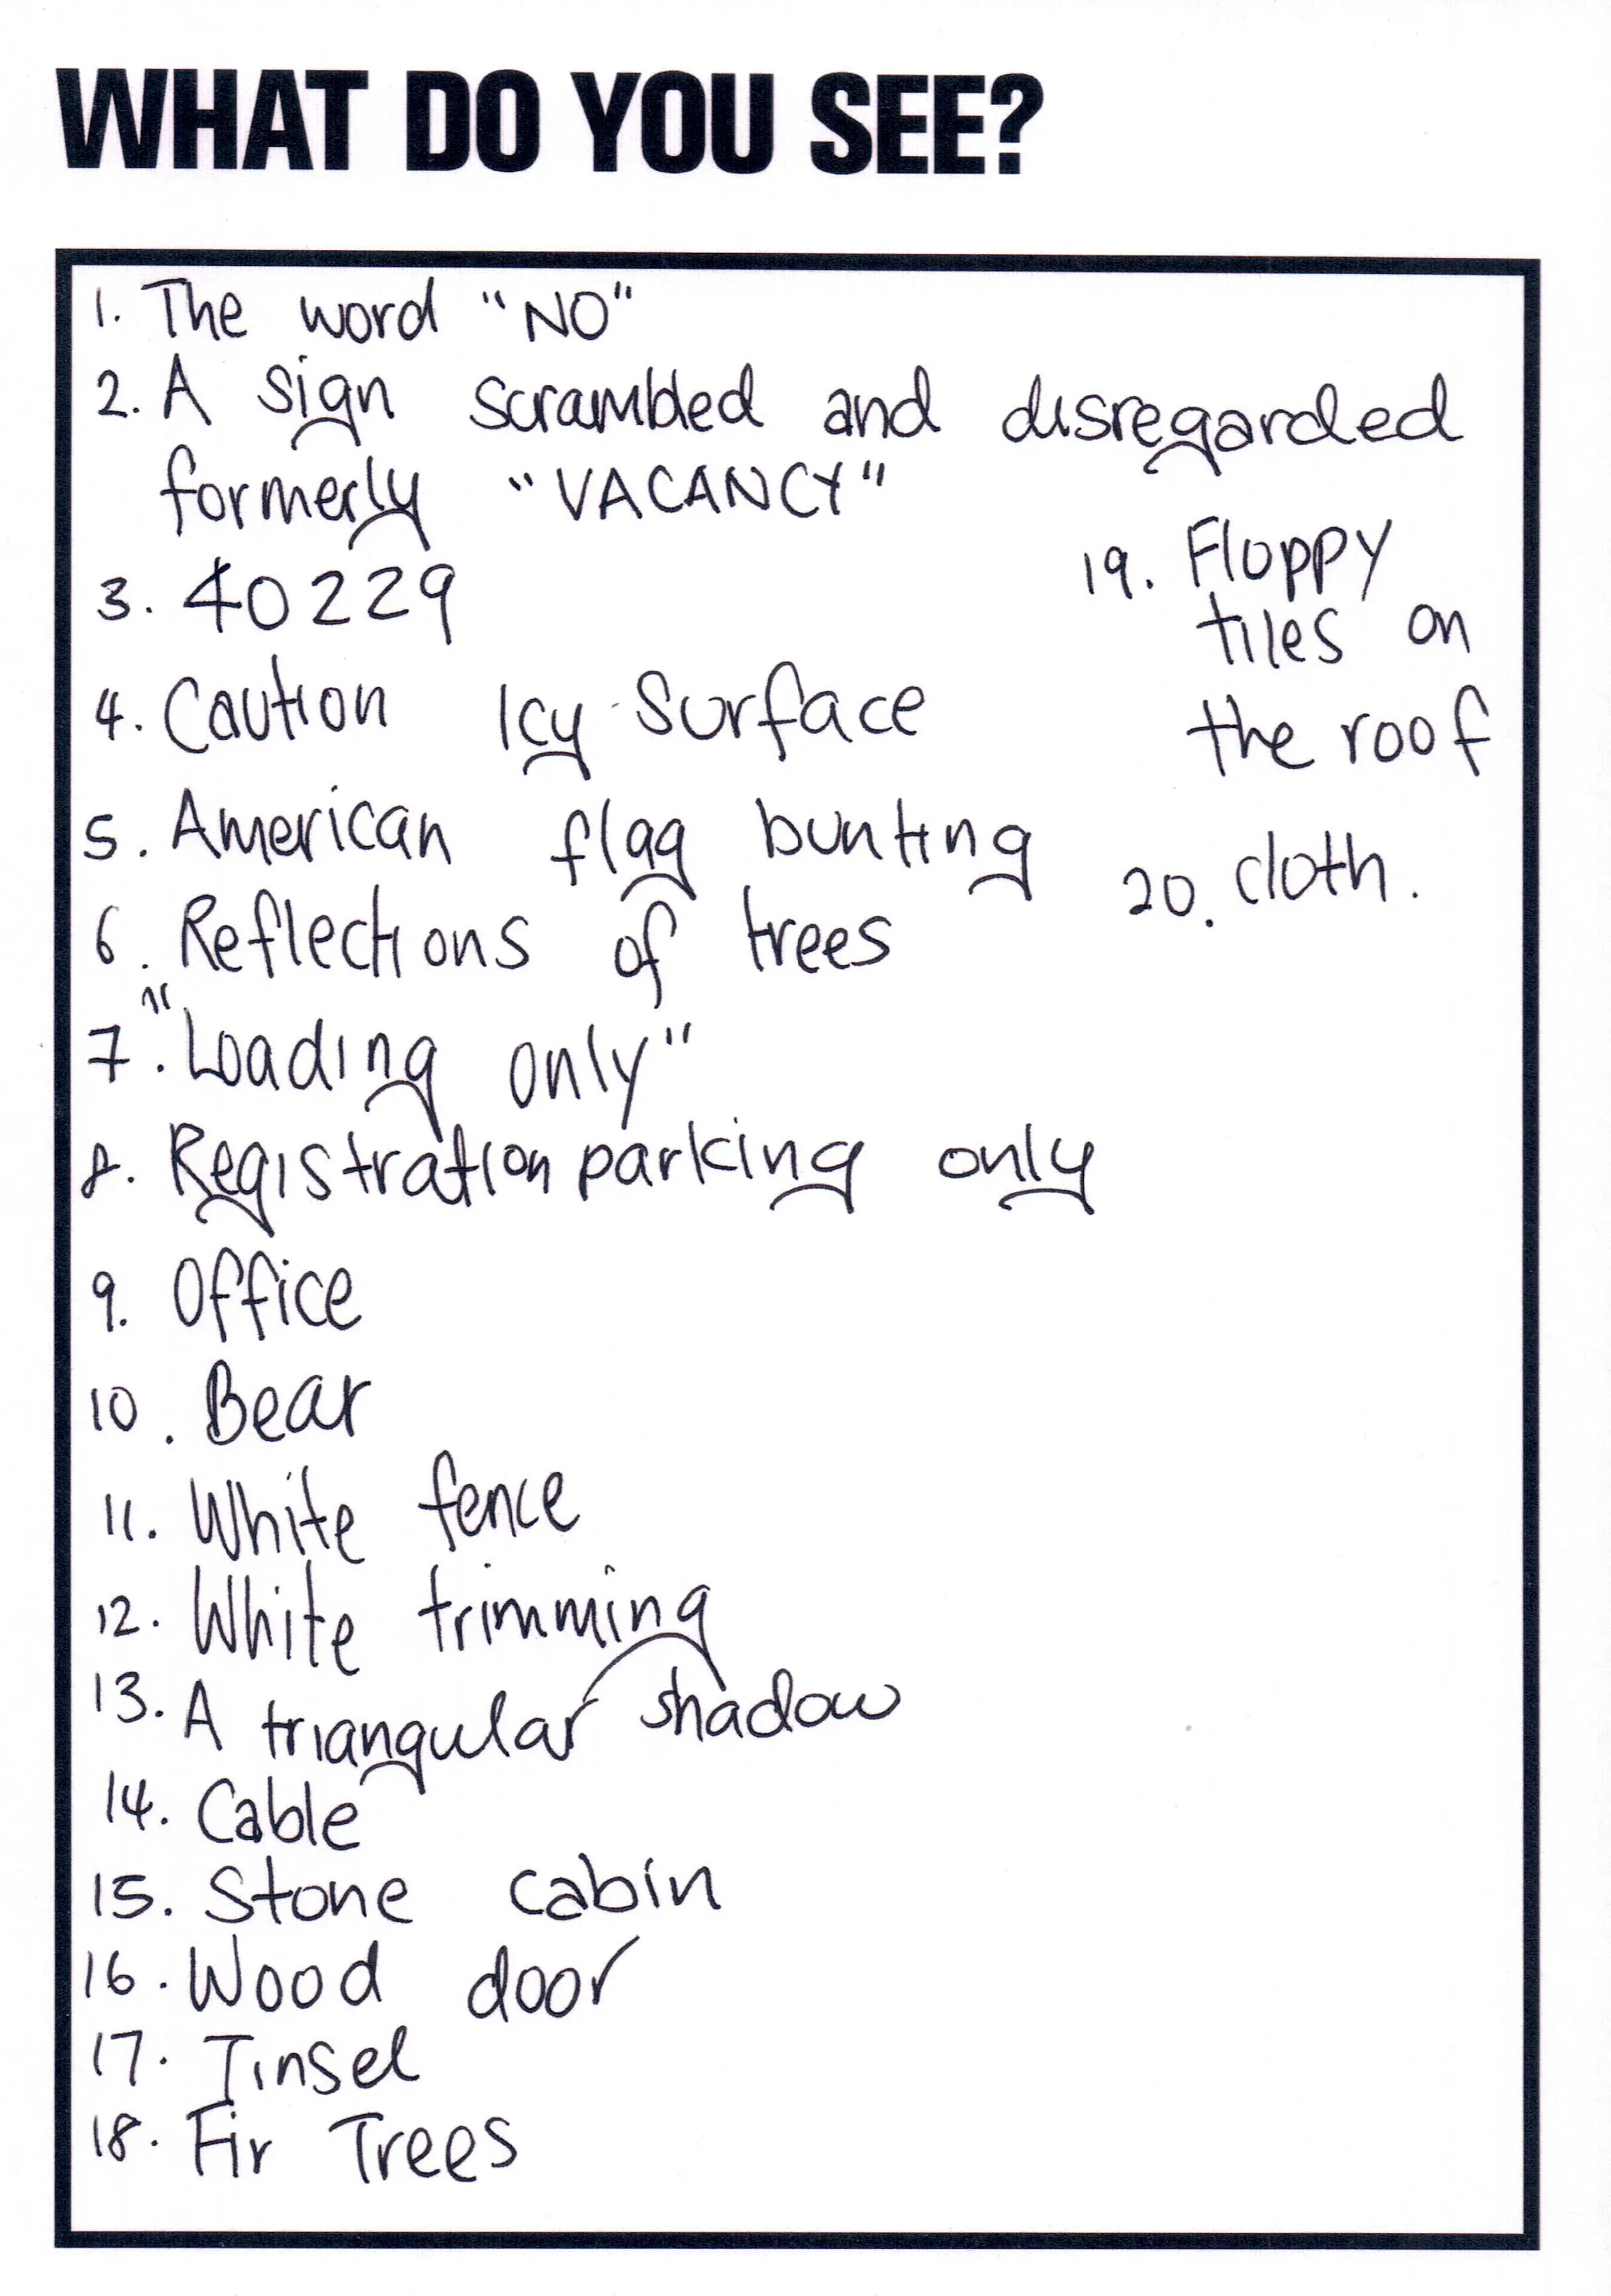 WHAT DO YOU SEE?
1. The word "NO"
2. A sign scrambled and disregarded
formerly "VACANCY"
3. 40229
4. Caution Icy Surface
5. American flag bunting
6. Reflections of trees
7. "Loading only"
8. Registration parking only
9. Office
10. Bear
11. White fence
12. White trimming
13. A triangular shadow
14. Cable
15. Stone cabin
16. Wood door
17. Tinsel
18. Fir Trees
19. Floppy
tiles on
the roof
20. cloth.